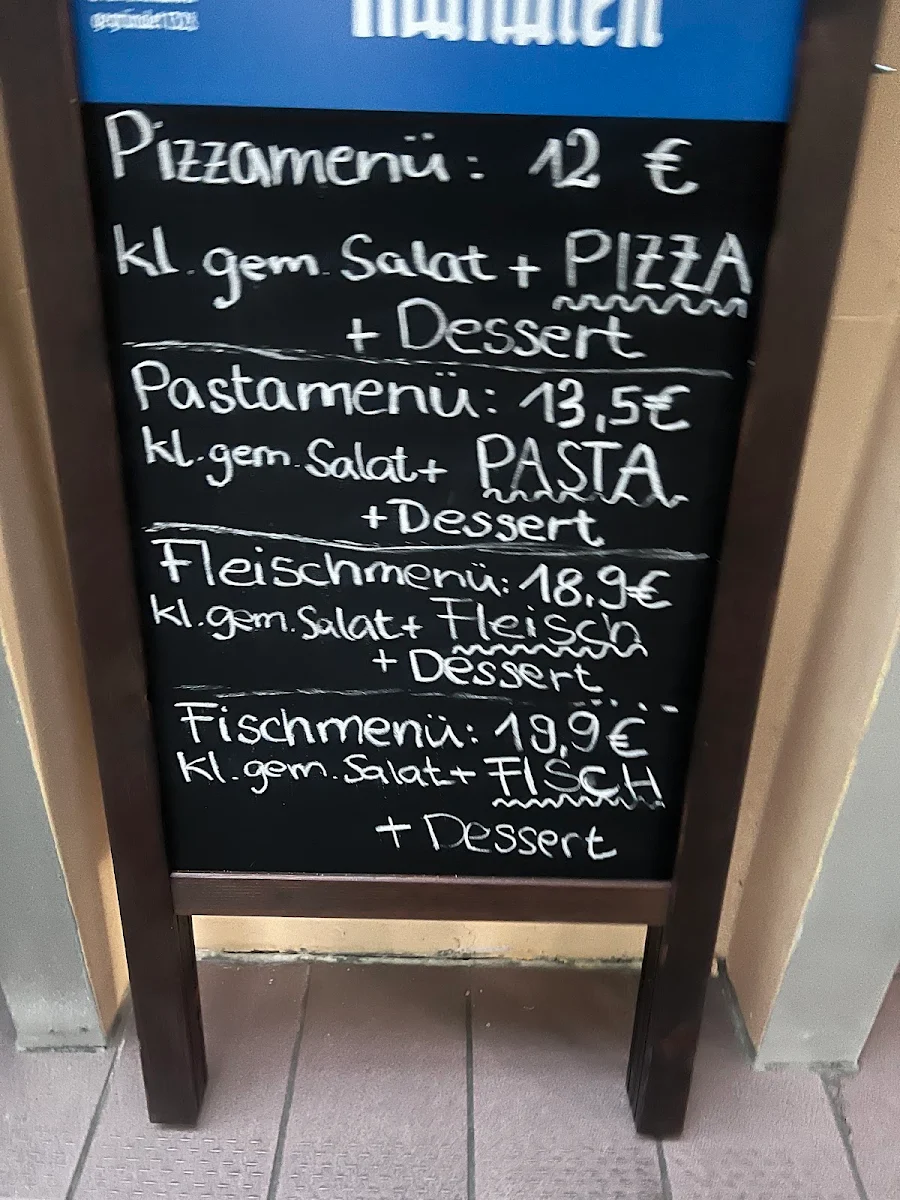 Pizzamenü: 12 €
kl. gem. Salat + PIZZA
+ Dessert
Pastamenü: 13,5€
kl. gem. Salat + PASTA
+ Dessert
Fleischmenü: 18,9€
kl. gem. Salat + Fleisch
+ Dessert
Fischmenü: 19,9€
kl. gem. Salat + FISCH
+ Dessert